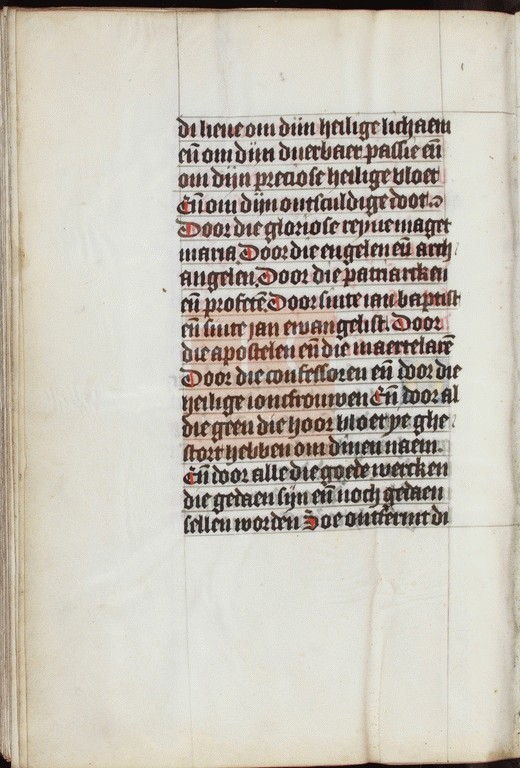 di lieue om dijn heilige lichaem
en̄ om dijn duerbaer passie en̄
om dijn preciose heilige bloet
En̄ om dijn ontsculdige doot
Door die gloriose reyne maget
maria Door die engelen en̄ arch
angelen. Door die patriarcken
en̄ profetē. Door sinte ian baptist
en̄ sinte jan ewangelist. Door
die apostelen en̄ die maertelarē
Door die confessoren en̄ door die
heilige ioncfrouwen En̄ door al
die geen die hoor bloetye ghe
stort hebben om dinen naem.
En̄ door alle die goede wercken
die gedaen sijn en̄ noch gedaen
sellen worden Soe ontfermt di